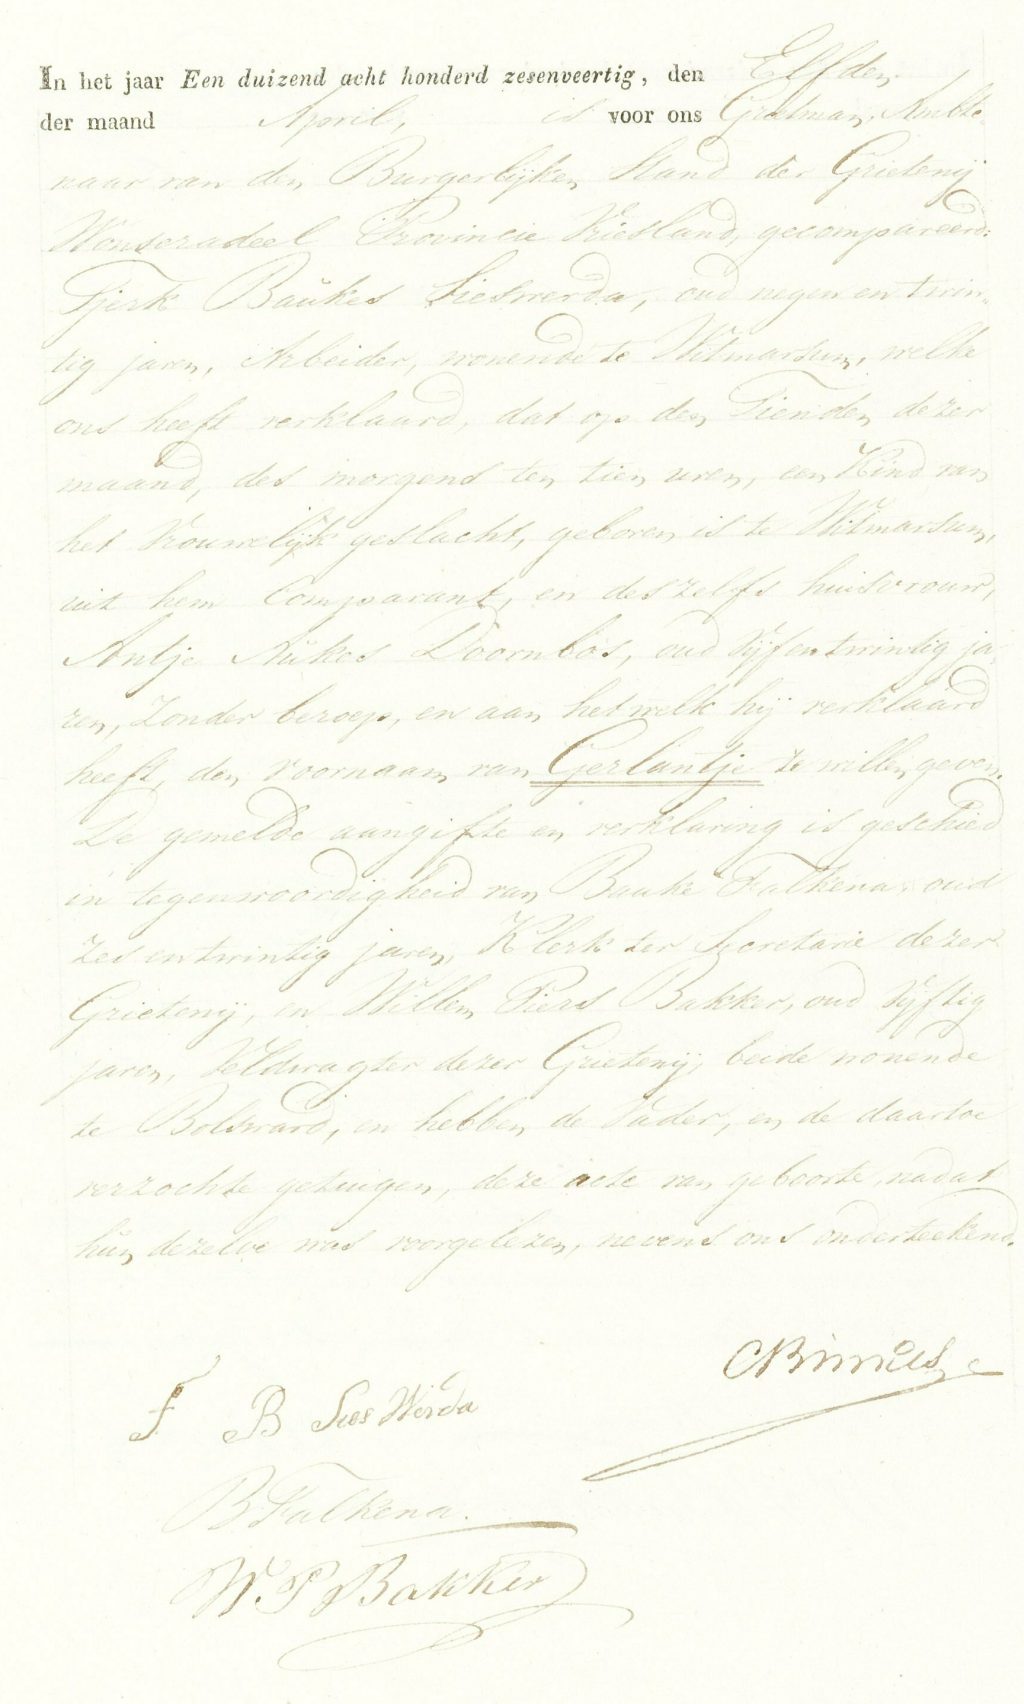 In het jaar Een duizend acht honderd zesenveertig, den Elfden
der maand April, is voor ons Grietman, Ambte-
naar van den Burgerlijken Stand der Grietenij
Wonseradeel Provincie Vriesland, gecompareerd:
Tjerk Baukes Sieswerda, oud negen en twin-
tig jaren, Arbeider, wonende te Witmarsum, welke
ons heeft verklaard, dat op den Tienden dezer
maand, des morgens ten tien uren, een Kind van
het Vrouwelijk geslacht, geboren is te Witmarsum,
uit hem Comparant, en deszelfs huisvrouw,
Antje Aukes Doornbos, oud Vijfentwintig ja-
ren, zonder beroep, en aan hetwelk hij verklaard
heeft, den voornaam van Gerlantje te willen geven.
De gemelde aangifte en verklaring is geschied
in tegenwoordigheid van Bauke Falkena oud
zes entwintig jaren, Klerk ter Secretarie dezer
Grietenij, en Willem Piers Bakker, oud Vijftig
jaren, Veldwagter dezer Grietenij, beide wonende
te Bolsward, en hebben de Vader, en de daartoe
verzochte getuigen, deze acte van geboorte, nadat
hun dezelve was voorgelezen, nevens ons onderteekend.
B Sies Werda
B. Falkena.
W. P. Bakker